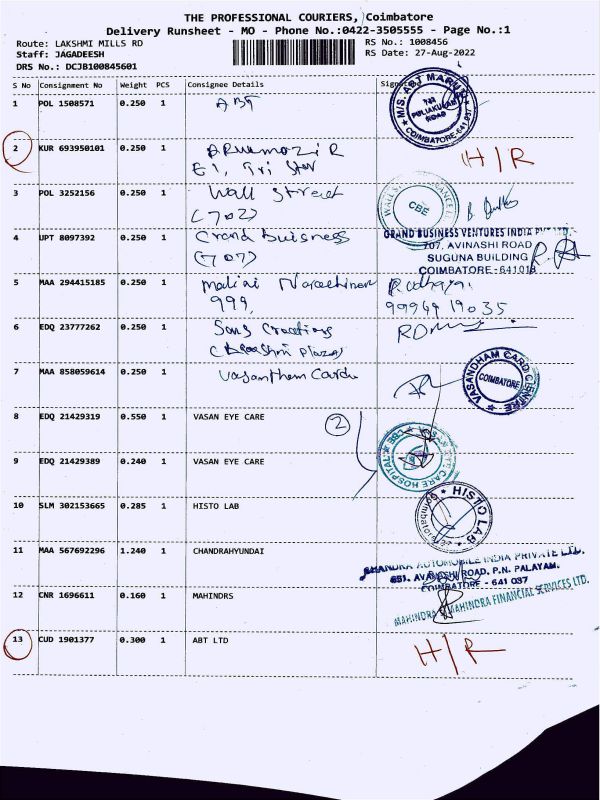 THE PROFESSIONAL COURIERS, Coimbatore
Delivery Runsheet - MO - Phone No.:0422-3505555 - Page No.:1
Route: LAKSHMI MILLS RD
RS No.: 1008456
Staff: JAGADEESH
RS Date: 27-Aug-2022
DRS No.: DCJB100845601
S No Consignment No Weight PCS Consignee Details
1 POL 1508571 0.250 1 ABT
M/S. ABT MARUTI
PULIAKULAM
ROAD
COIMBATORE-641 037
2 KUR 693950101 0.250 1
E1, Tri Star
H/R
3 POL 3252156 0.250 1 Wall Street
(702)
CBE
4 UPT 8097392 0.250 1 Grand Buisness
(707)
GRAND BUSINESS VENTURES INDIA PVT LTD.
707, AVINASHI ROAD
SUGUNA BUILDING
COIMBATORE - 641018
5 MAA 294415185 0.250 1 malini
999,
99949 19035
6 EDQ 23777262 0.250 1 Sans Creations
Plaza)
7 MAA 858059614 0.250 1 Vasantham Cards
VASANDHAM CARD CENTRE
COIMBATORE
8 EDQ 21429319 0.550 1 VASAN EYE CARE
2
9 EDQ 21429389 0.240 1 VASAN EYE CARE
EYE CARE HOSPITAL
10 SLM 302153665 0.285 1 HISTO LAB
HISTO LAB
Coimbatore
11 MAA 567692296 1.240 1 CHANDRAHYUNDAI
CHANDRA AUTOMOBILE INDIA PRIVATE LTD.
651, AVINASHI ROAD, P.N. PALAYAM,
COIMBATORE - 641 037
12 CNR 1696611 0.160 1 MAHINDRS
MAHINDRA & MAHINDRA FINANCIAL SERVICES LTD.
13 CUD 1901377 0.300 1 ABT LTD
H/R